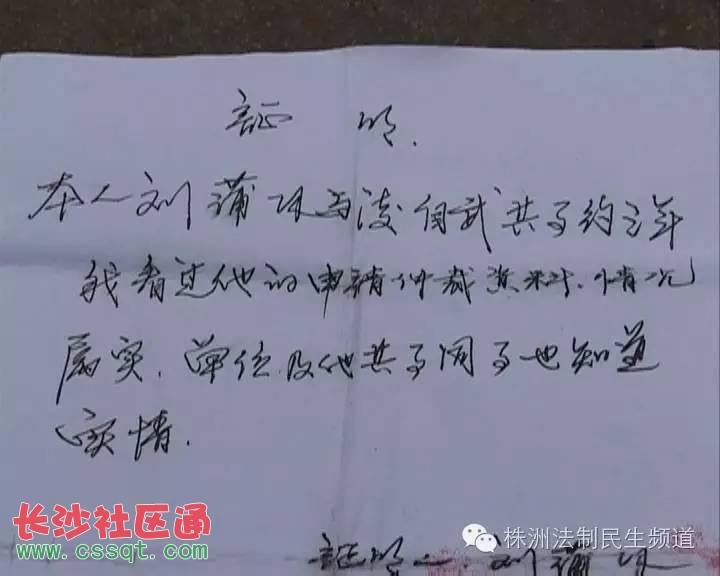 证 明.
本人刘蒲 与凌自武共事约三年
我看过他的申请仲裁资料.情况
属实.单位及他共事同事也知道
实情.
证明人.刘蒲
长沙社区通
www.cssqt.com
株洲法制民生频道